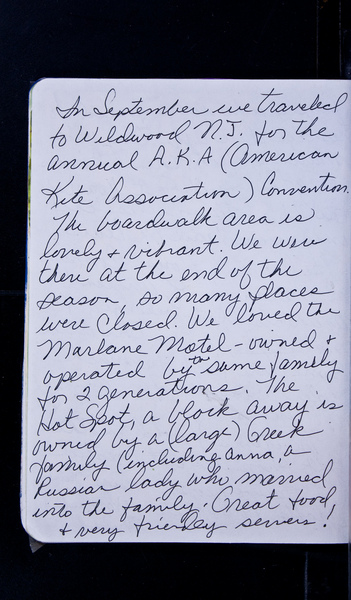 In September we traveled
to Wildwood N.J. for the
annual A.K.A (American
Kite Association) Convention.
The boardwalk area is
lovely + vibrant. We were
there at the end of the
season, so many places
were closed. We loved the
Marlane Motel - owned +
operated by the same family
for 2 generations. The
Hot Spot, a block away is
owned by a (large) Greek
family (including Anna, a
Russian lady who married
into the family. Great food
+ very friendly servers!